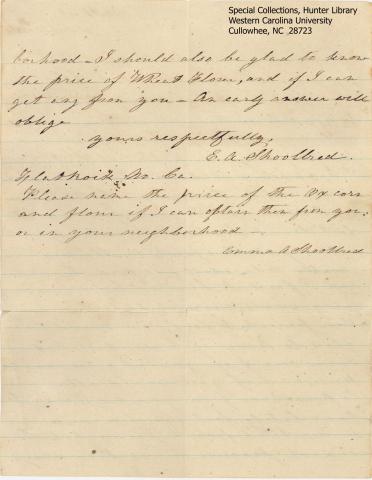 Special Collections, Hunter Library
Western Carolina University
Cullowhee, NC 28723
borhood - I should also be glad to know
the price of Wheat Flour, and if I can
get any from you - An early answer will
oblige
yours respectfully,
E. A. Shoolbred.
Flat Rock No. Ca.
Please name the price of the Ox corn
and flour if I can obtain them from you,
or in your neighborhood
Emma A Shoolbred